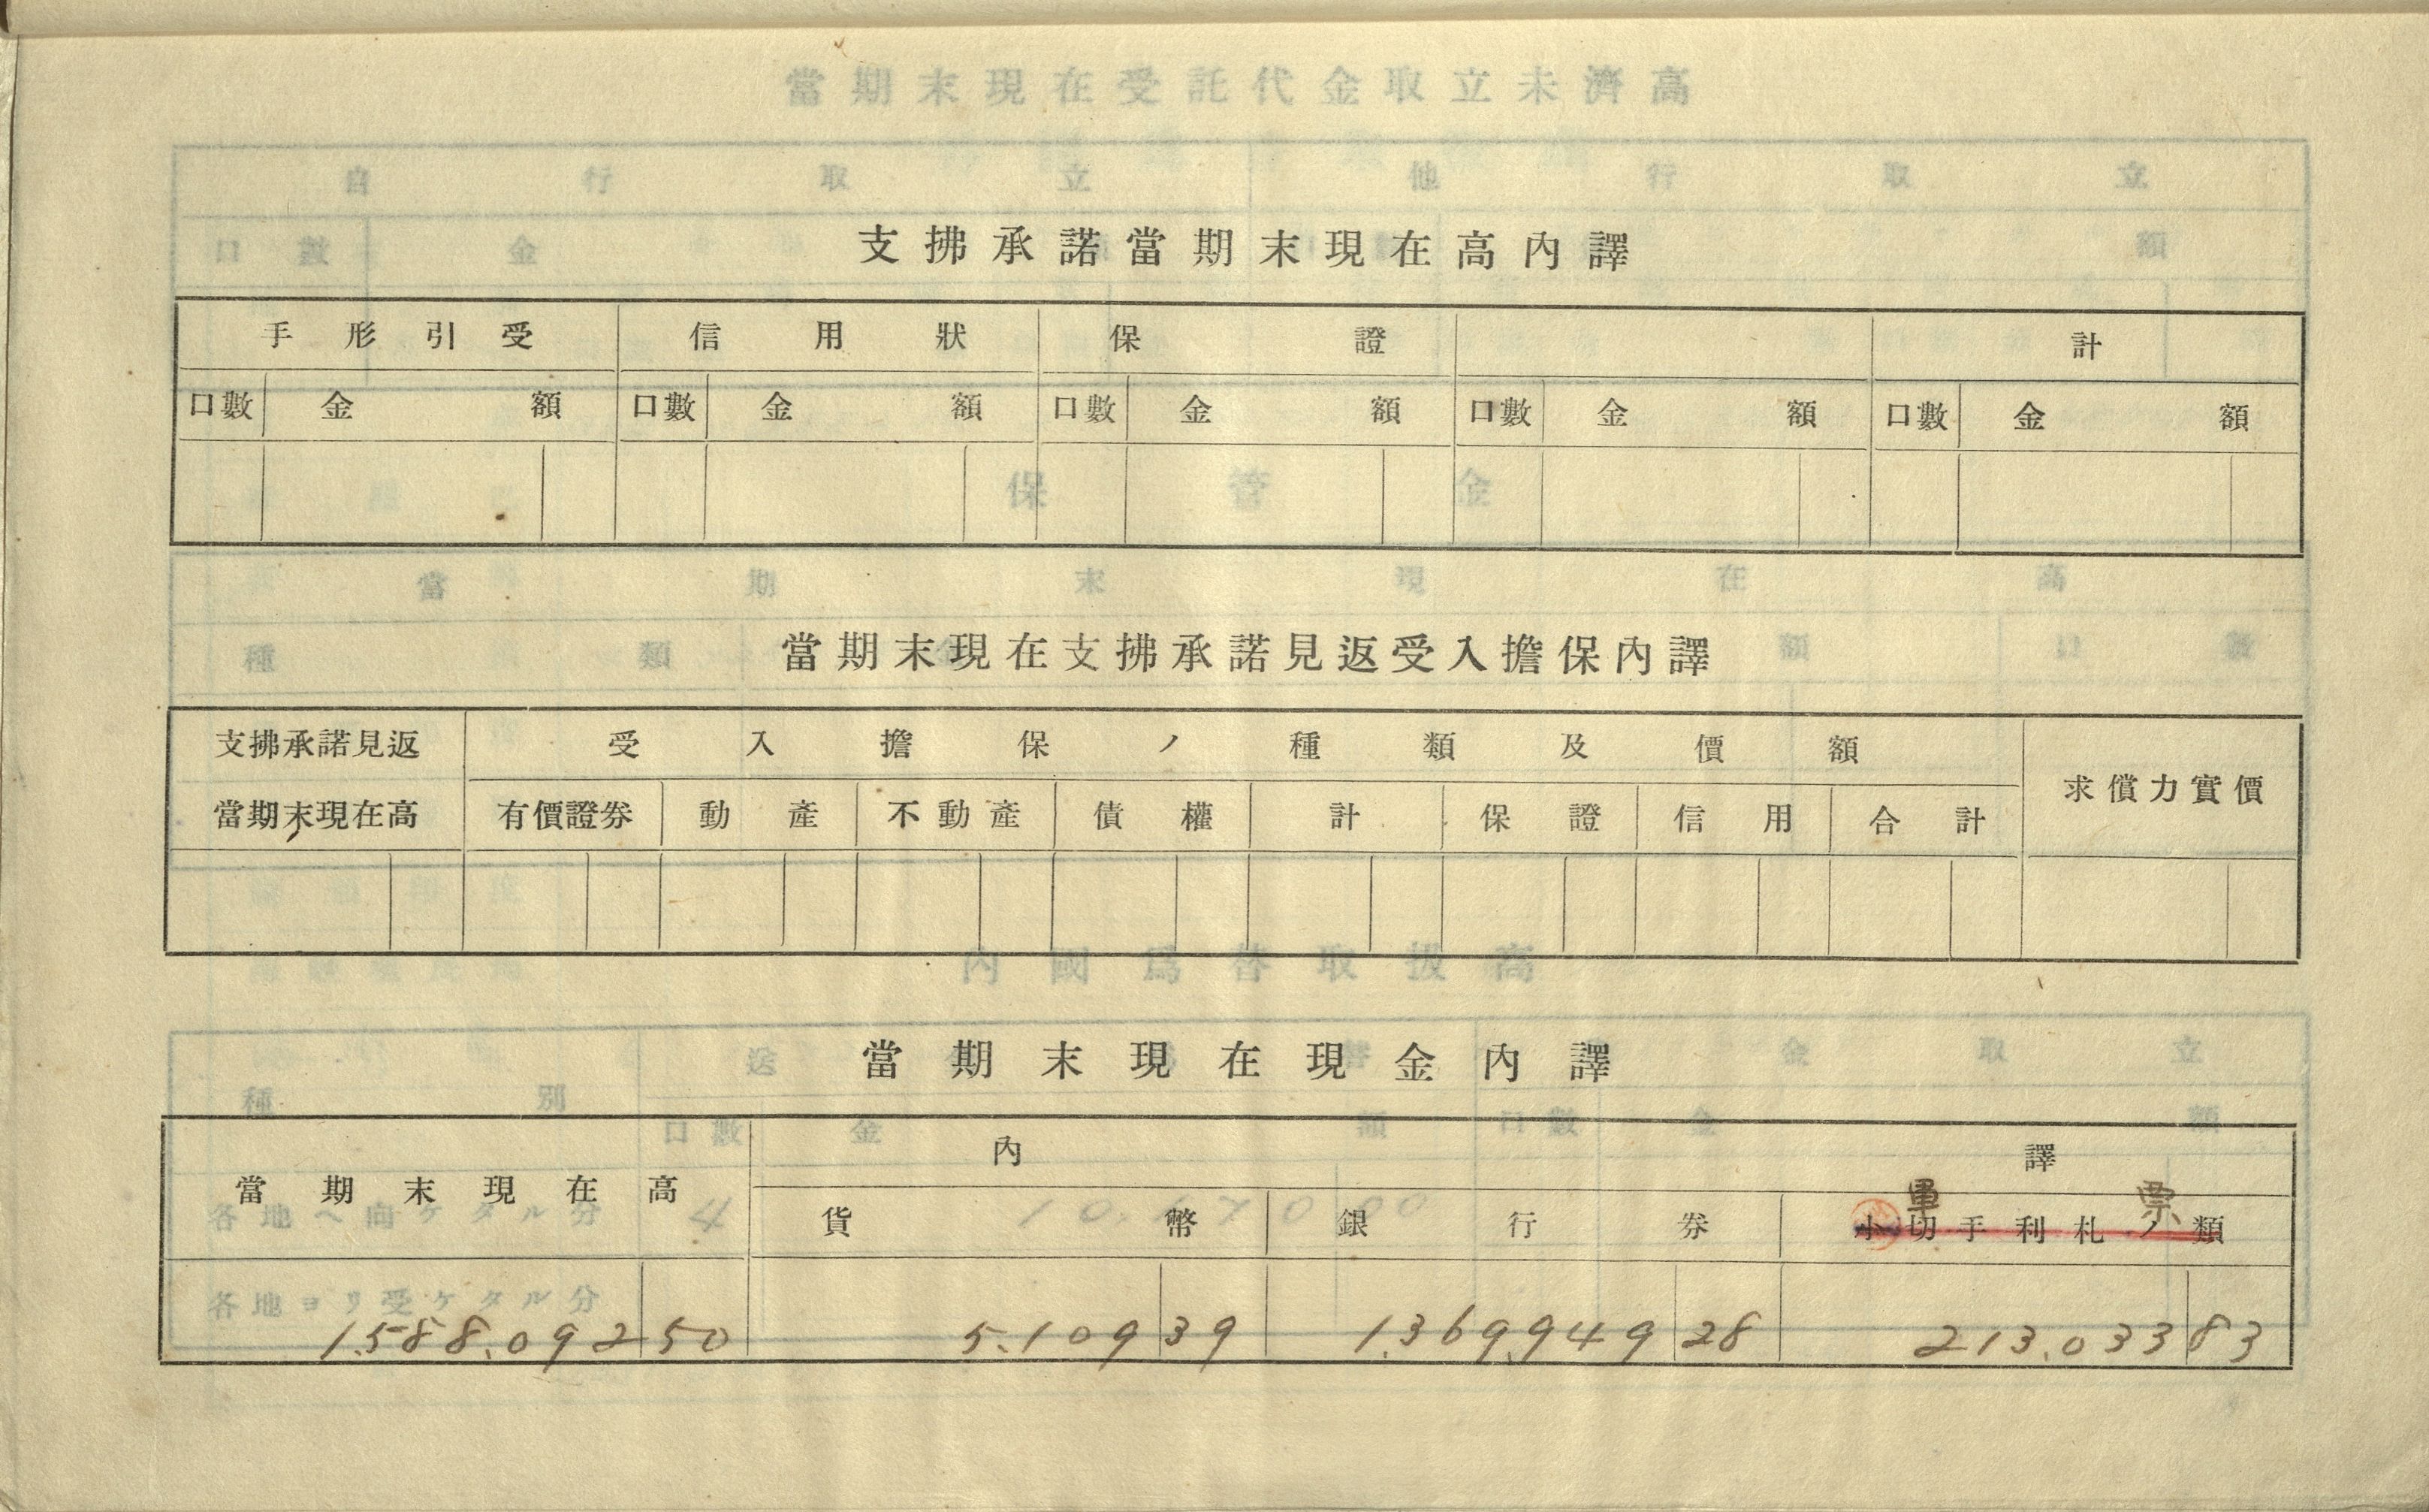 支拂承諾當期末現在高內譯
手形引受 信用狀 保證 計
口數 金額 口數 金額 口數 金額 口數 金額 口數 金額
當期末現在支拂承諾見返受入擔保內譯
支拂承諾見返 受入擔保ノ種類及價額
當期末現在高 有價證券 動產 不動產 債權 計 保證 信用 合計 求償力實價
當期末現在現金內譯
當期末現在高 內譯
軍票
貨幣 銀行券 小切手利札ノ類
1.588.092 50 5.109 39 1.369.949 28 213.033 83
當期末現在受託代金取立未濟高
自行取立 他行取立
口數 金額
保管金
當期末現在高
種類 額 口數
內國爲替取扱高
種別 送 金取立
口數 金額 口數 金額
各地へ向ケタル分 4
各地ヨリ受ケタル分